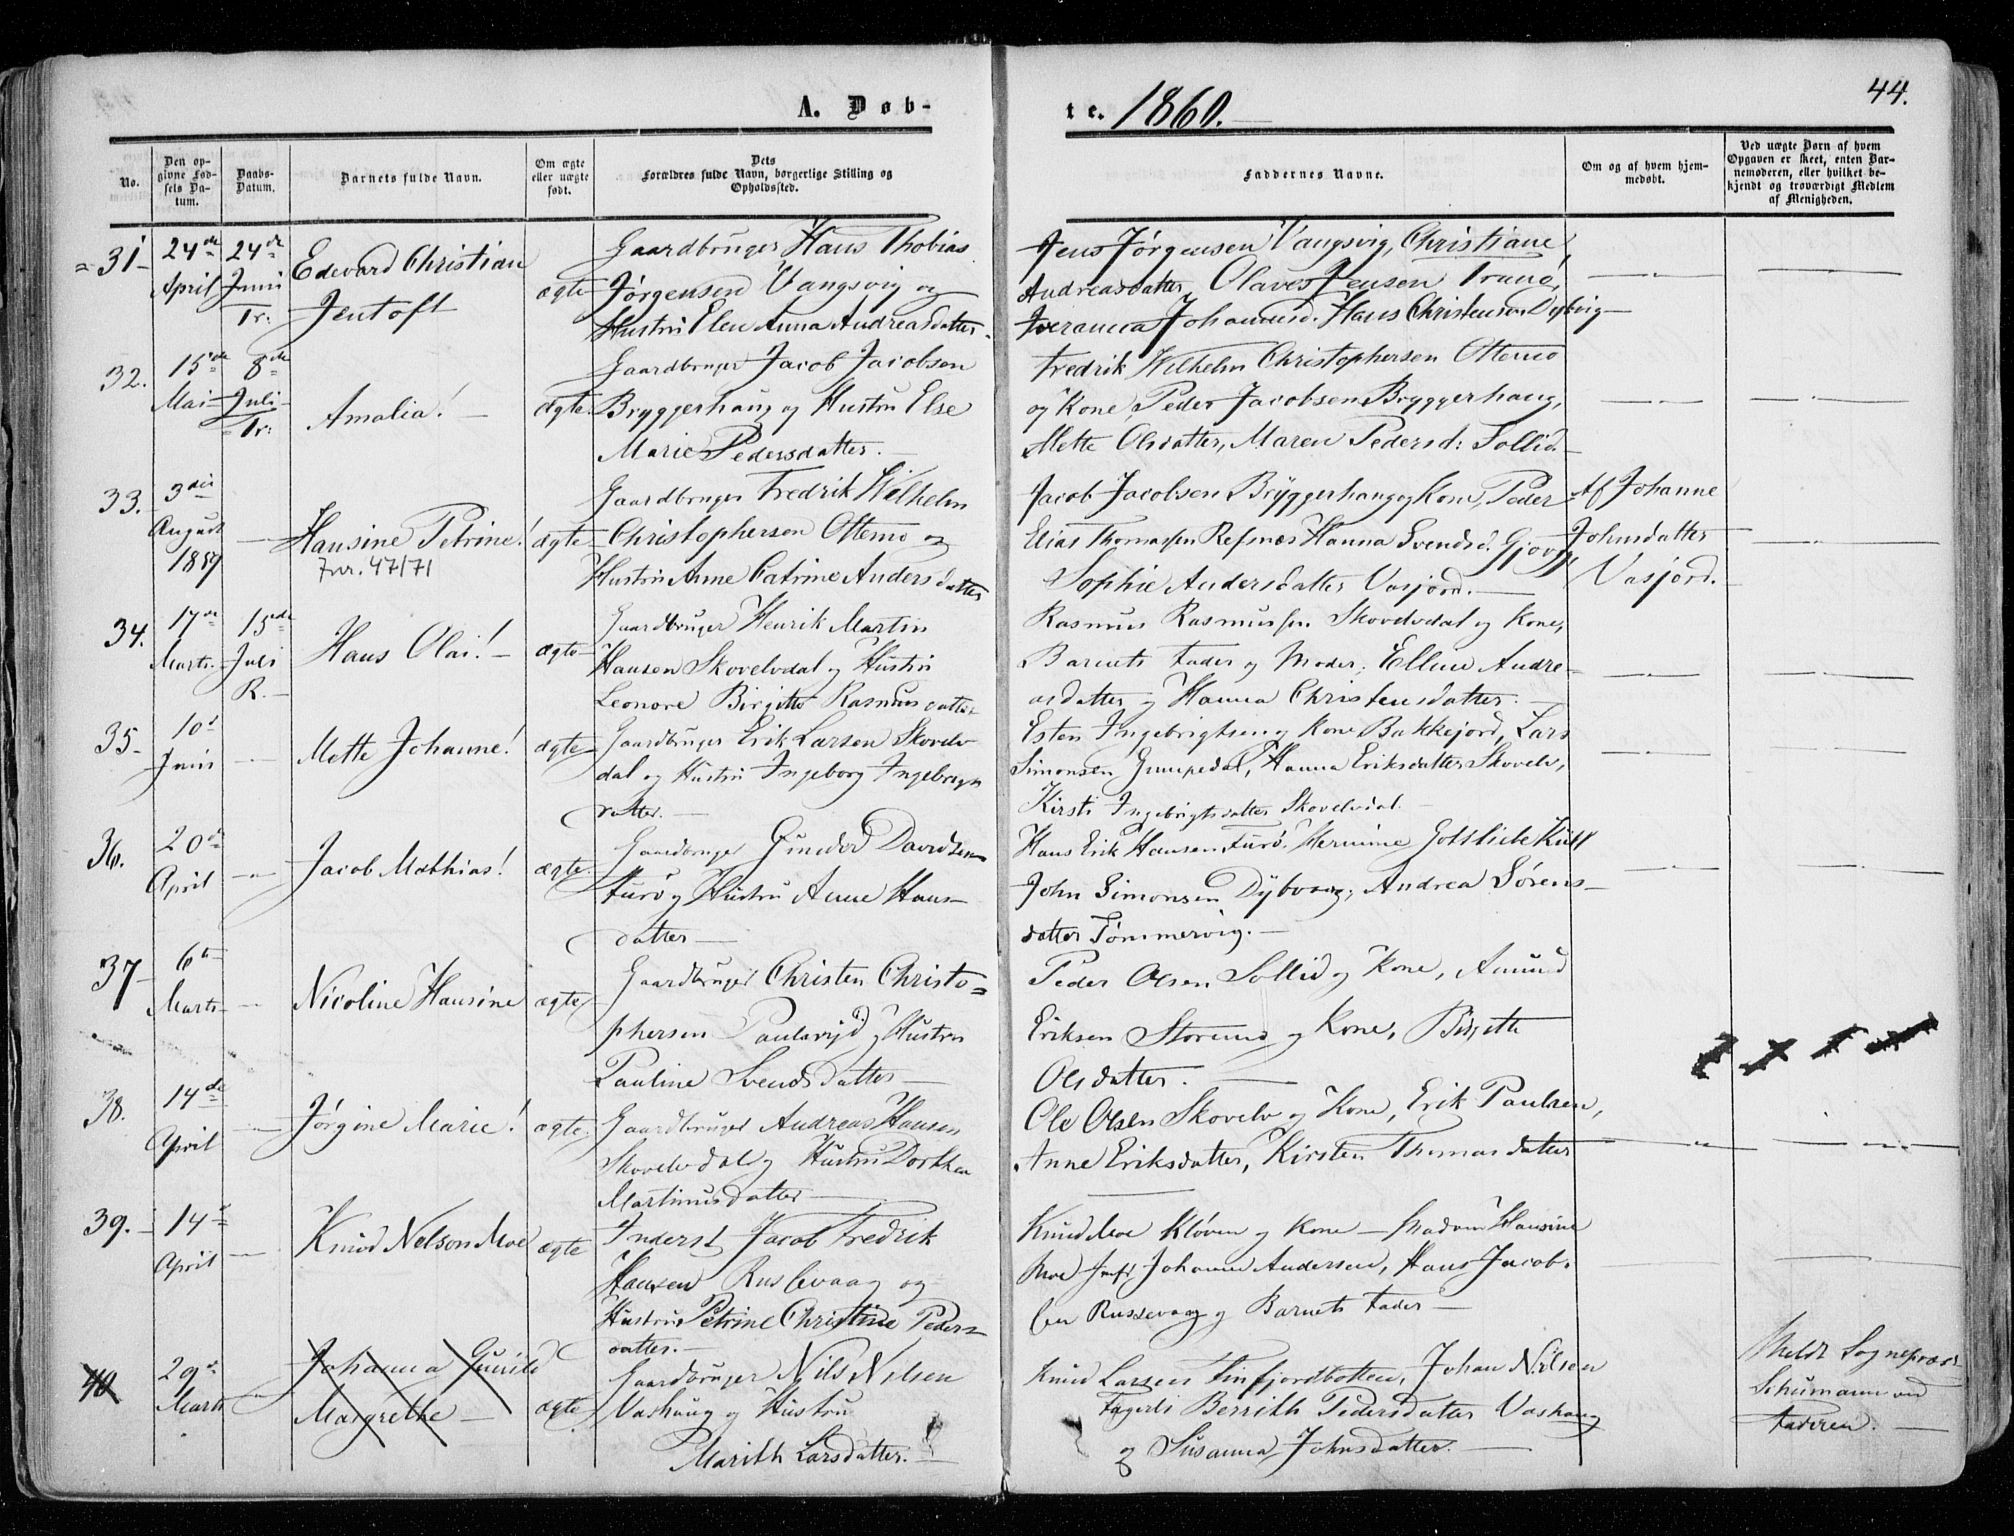 44.
A. Døb-
te. 1860.
No.
Den op-
givne Fød-
sels Da-
tum.
Daabs-
Datum.
Barnets fulde Navn.
Om ægte
eller uægte
født.
Dets
Forældres fulde Navn, borgerlige Stilling og
Opholdssted.
Faddernes Navne.
Om og af hvem hjem-
medøbt.
Ved uægte Børn af hvem
Opgaven er skeet, enten Bar-
nemoderen, eller hvilket be-
kjendt og troværdigt Medlem
af Menigheden.
31
24de
April
24de
Juni
Tr:
Edevard Christian
Jentoft
ægte
Gaardbruger Hans Thobias
Jørgensen Vangsvig og
Hustru Elen Anna Andreasdatter
Jens Jørgensen Vangsvig, Christiane
Andreasdatter, Olaves Jensen Tranø,
Johannesd. Hans Christensen Dybvig
32.
15de
Mai
8de
Juli
Tr:
Amalia!
ægte
Gaardbruger Jacob Jacobsen
Bryggerhaug og Hustru Else
Marie Pedersdatter.
Fredrik Wilhelm Christophersen Ottemo
og Kone, Peder Jacobsen Bryggerhaug,
Mette Olsdatter, Maren Pedersd: Sollid
33.
3die
August
1859
Hansine Petrine!
Fnr. 47/71
ægte
Gaardbruger Fredrik Wilhelm
Christophersen Ottemo og
Hustru Anne Catrine Andersdatter
Jacob Jacobsen Bryggerhaug og Kone, Peder
Elias Thomassen Refsnæs Hanna Svendsd. Gjovig
Sophie Andersdatter Vasjord.
Af Johanne
Johnsdatter
Vasjord.
34.
17de
Marts
15de
Juli
R.
Hans Olai!
ægte
Gaardbruger Henrik Martin
Hansen Skovelvdal og Hustru
Leonore Birgitte Rasmusdatter
Rasmus Rasmussen Skovelvdal og Kone,
Barnets Fader og Moder, Elline Andre-
asdatter og Hanna Christensdatter.
35
10d
Juni
Mette Johanne!
ægte
Gaardbruger Erik Larsen Skovelv
dal og Hustru Ingeborg Ingebrigts
datter.
Esten Ingebrigtsen og Kone Bakkejord, Lars
Simonsen Gumpedal, Hanna Eriksdatter Skovelv,
Kirsti Ingebrigtsdatter Skovelvdal.
36.
20de
April
Jacob Mathias!
ægte
Gaardbruger Gunder Davidsen
Furø og Hustru Anne Hans-
datter
Hans Erik Hansen Furø. Hermine Gotliebe Kiil
John Simonsen Dybvaag, Andrea Sørens-
datter Tømmervig.
37
6te
Marts
Nicoline Hansine
ægte
Gaardbruger Christen Christo=
phersen Paulsryd og Hustru
Pauline Svendsdatter
Peder Olsen Sollid og Kone, Amund
Eriksen Storeund og Kone, Birgitte
Olsdatter.
38.
14de
April
Jørgine Marie!
ægte
Gaardbruger Andreas Hansen
Skovelvdal og Hustru Dorthea
Martinusdatter
Ole Olsen Skovelv og Kone, Erik Paulsen,
Anne Eriksdatter, Kirsten Thomasdatter
39.
14d
April
Knud Nelson Moe
ægte
Inderst Jacob Fredrik
Hansen Russevaag og
Hustru Petrine Christine Peders-
datter.
Knud Moe Kløven og Kone — Madam Hansine
Moe Jmf Johanne Andersen, Hans Jacob-
sen Russevaag og Barnets Fader
40
29de
Marts
Johanna Gunild
Margrethe
ægte
Gaardbruger Nils Nilsen
Vashaug og Hustru
Marith Larsdatter.
Knud Larsen Finfjordbotten, Johan Nilsen
Fagerli Berrith Pedersdatter Vashaug
og Susanna Johnsdatter.
Meldt Sognepræst
Schumann ved
Faderen.